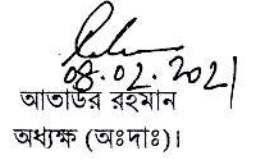 08.02.2021
আতাউর রহমান
অধ্যক্ষ (অঃদাঃ)।